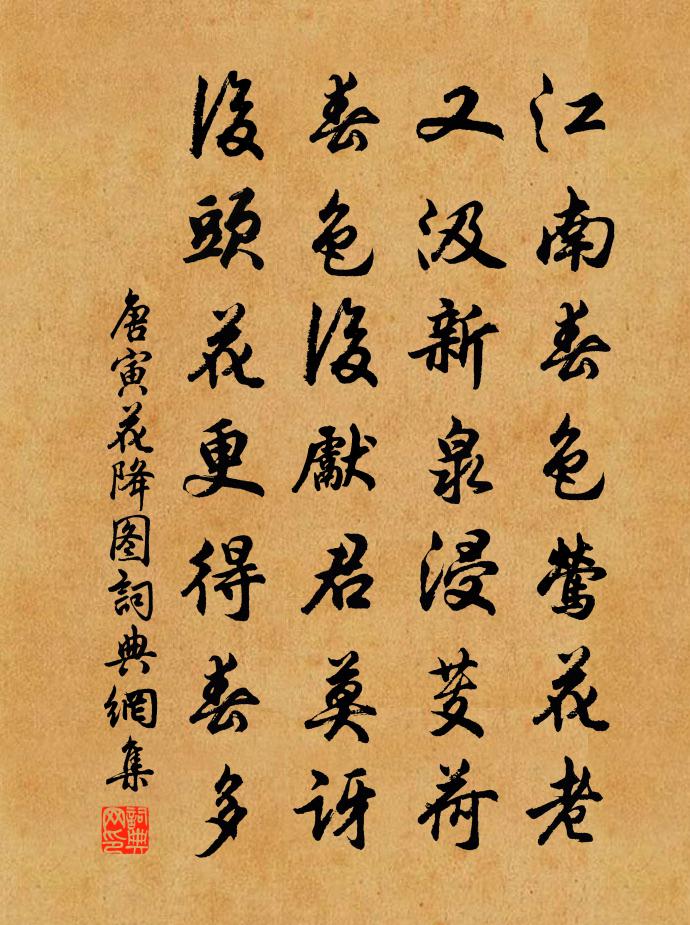 江南春色鶯花老
又汲新泉浸芰荷
春色後獻君莫訝
後頭花更得春多
唐寅花降图詞典網集
詞典网印